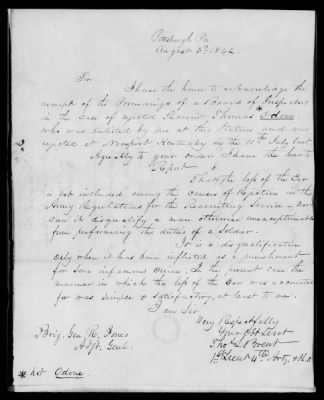 Pittsburgh Pa
August 3d 1842
Sir.
I have the honor to acknowledge the
receipt of the Proceedings of a Board of Inspectors
in the case of rejected Recruit Thomas *Odone
who was enlisted by me at this Station and was
rejected at Newport Kentucky on the 11th July last
Agreeably to your order I have the honor to
Report
That the loss of the Ear
is not included among the causes of rejection in the
Army Regulations for the Recruiting Service - nor
can it disqualify a man otherwise unexceptionable
from performing the duties of a Soldier.
It is a disqualification
only when it has been inflicted as a punishment
for some infamous crime. In the present case the
manner in which the loss of the Ear was accounted
for was simple & satisfactory, at least to me.
I am Sir
Very Respectfully
Your Obt Servt
Thos. L Brent
1st Lieut 4th Arty, &
Brig. Gen R. Jones
Adjt. Genl.
* not Odone